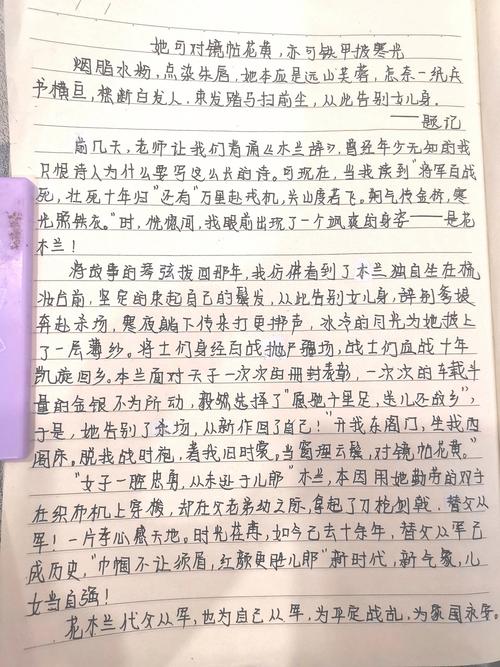 她可对镜帖花黄，亦可铁甲披寒光
烟脂水粉，点染朱唇，她本应是远山芙蓉，怎奈一纸兵
书横亘，横断白发人，束发踏马扫前尘，从此告别女儿身。
——题记
前几天，老师让我们背诵《木兰辞》，曾经年少无知的我
只恨诗人为什么要写这么长的诗。可现在，当我读到“将军百战
死，壮士十年归”还有“万里赴戎机，关山度若飞。朔气传金柝，寒
光照铁衣。”时，恍惚间，我眼前出现了一个飒爽的身姿——是花
木兰！
将故事的琴弦拨回那年，我仿佛看到了木兰独自坐在梳
妆台前，坚定的束起自己的鬓发，从此告别女儿身，辞别爹娘
奔赴杀场，寒夜躺下传来打更梆声，冰冷的月光为她披上
了一层薄纱。将士们身经百战抛尸疆场，战士们血战十年
凯旋回乡。木兰面对天子一次次的册封表彰，一次次的车载斗
量的金银不为所动，毅然选择了“愿驰千里足，送儿还故乡”，
于是，她告别了杀场，从新作回了自己！“开我东阁门，坐我西
阁床。脱我战时袍，着我旧时裳。当窗理云鬓，对镜帖花黄。”
“女子一腔忠勇，从未逊于儿郎”木兰，本因用她勤劳的双手
在织布机上穿梭，却在父老弟幼之际，拿起了刀枪剑戟，替父从
军！一片孝心感天地。时光荏苒，如今已去千余年，替父从军已
成历史，“巾帼不让须眉，红颜更胜儿郎”新时代，新气象，儿
女当自强！
花木兰代父从军，也为自己从军，为平定战乱，为家国永安。